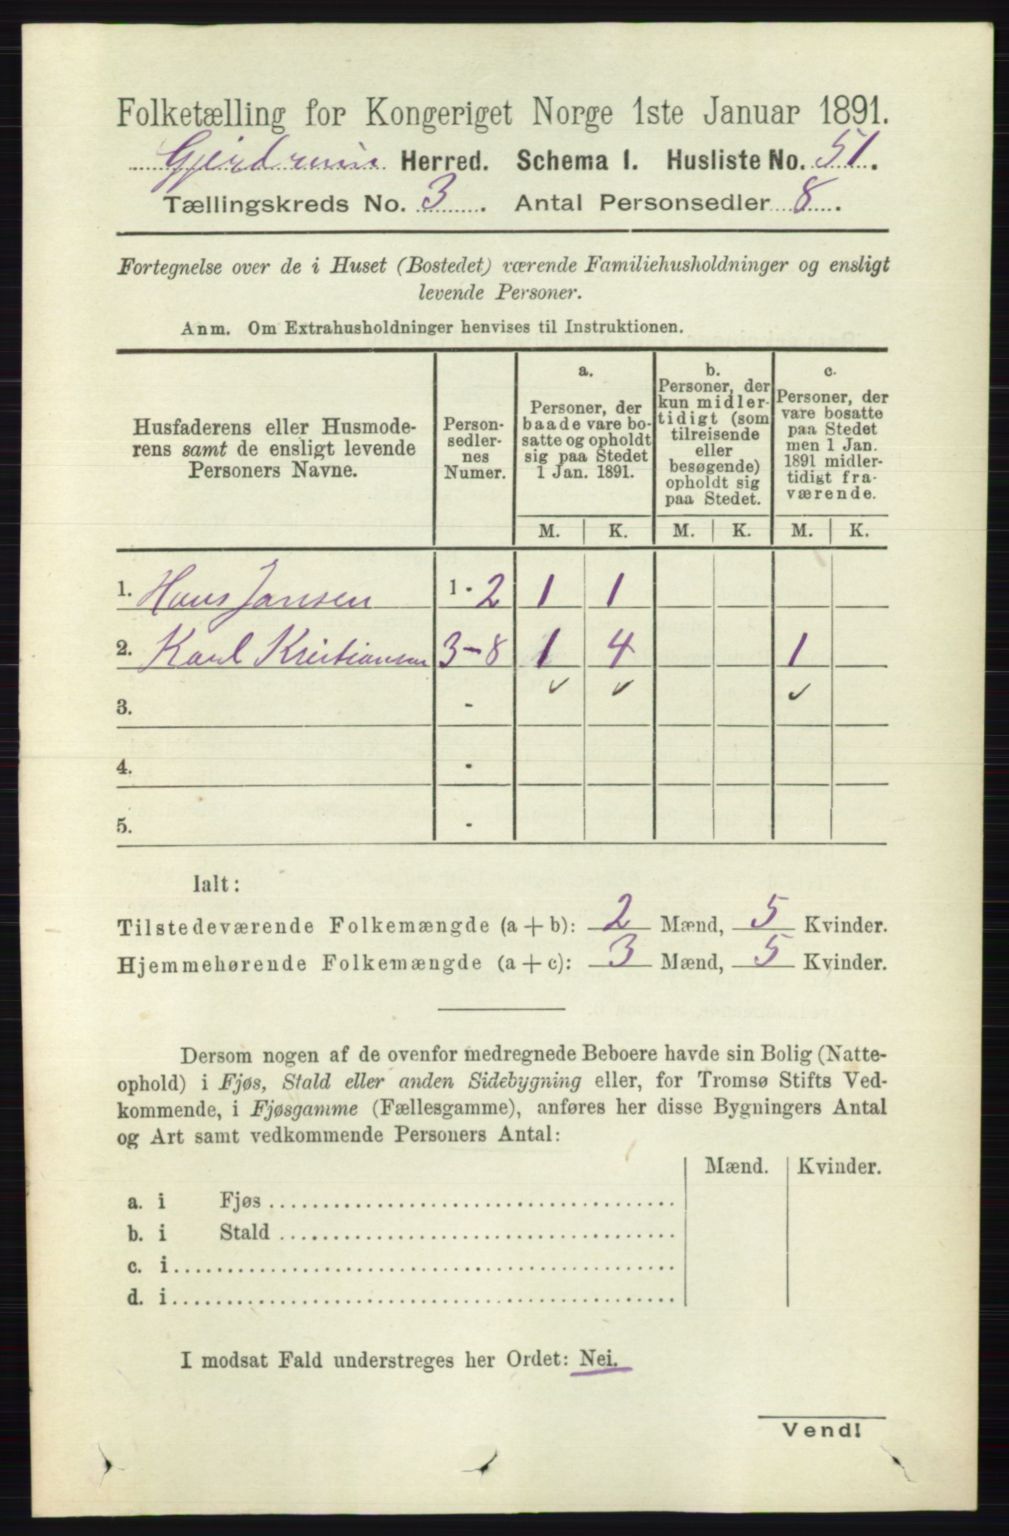 Folketælling for Kongeriget Norge 1ste Januar 1891.
Gjerdrum Herred. Schema I. Husliste No. 51.
Tællingskreds No. 3. Antal Personsedler 8.
Fortegnelse over de i Huset (Bostedet) værende Familiehusholdninger og ensligt
levende Personer.
Anm. Om Extrahusholdninger henvises til Instruktionen.
Husfaderens eller Husmode-
rens samt de ensligt levende
Personers Navne.
Person-
sedler-
nes
Numer.
a.
Personer, der
baade vare bo-
satte og opholdt
sig paa Stedet
1 Jan. 1891.
b.
Personer, der
kun midler-
tidigt (som
tilreisende
eller
besøgende)
opholdt sig
paa Stedet.
c.
Personer, der
vare bosatte
paa Stedet
men 1 Jan.
1891 midler-
tidigt fra-
værende.
M. K. M. K. M. K.
1. Hans Jansen 1 - 2 1 1
2. Karl Kristiansen 3-8 1 4 1
✓ ✓ ✓
3. -
4. -
5. -
Ialt:
Tilstedeværende Folkemængde (a + b): 2 Mænd, 5 Kvinder.
Hjemmehørende Folkemængde (a + c): 3 Mænd, 5 Kvinder.
Dersom nogen af de ovenfor medregnede Beboere havde sin Bolig (Natte-
ophold) i Fjøs, Stald eller anden Sidebygning eller, for Tromsø Stifts Ved-
kommende, i Fjøsgamme (Fællesgamme), anføres her disse Bygningers Antal
og Art samt vedkommende Personers Antal:
Mænd. Kvinder.
a. i Fjøs
b. i Stald
c. i
d. i
I modsat Fald understreges her Ordet: Nei.
Vend!